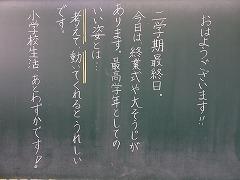 おはようございます!!
二学期最終日。
今日は終業式や大そうじが
あります。最高学年としての
いい姿とは…
考えて、動いてくれるとうれしい
です。
小学校生活 あとわずかです!